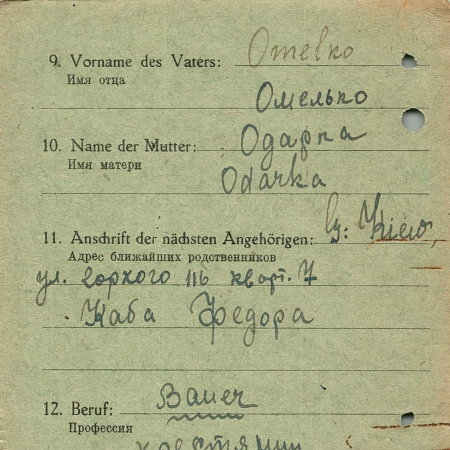 9. Vorname des Vaters: Omelko
Имя отца
Омелько
10. Name der Mutter: Одарка
Имя матери
Odarka
11. Anschrift der nächsten Angehörigen: Kiew,
Адрес ближайших родственников
ул. Горкого 116 кварт. 7
Каба Федора
12. Beruf: Bauer
Профессия
крестянин